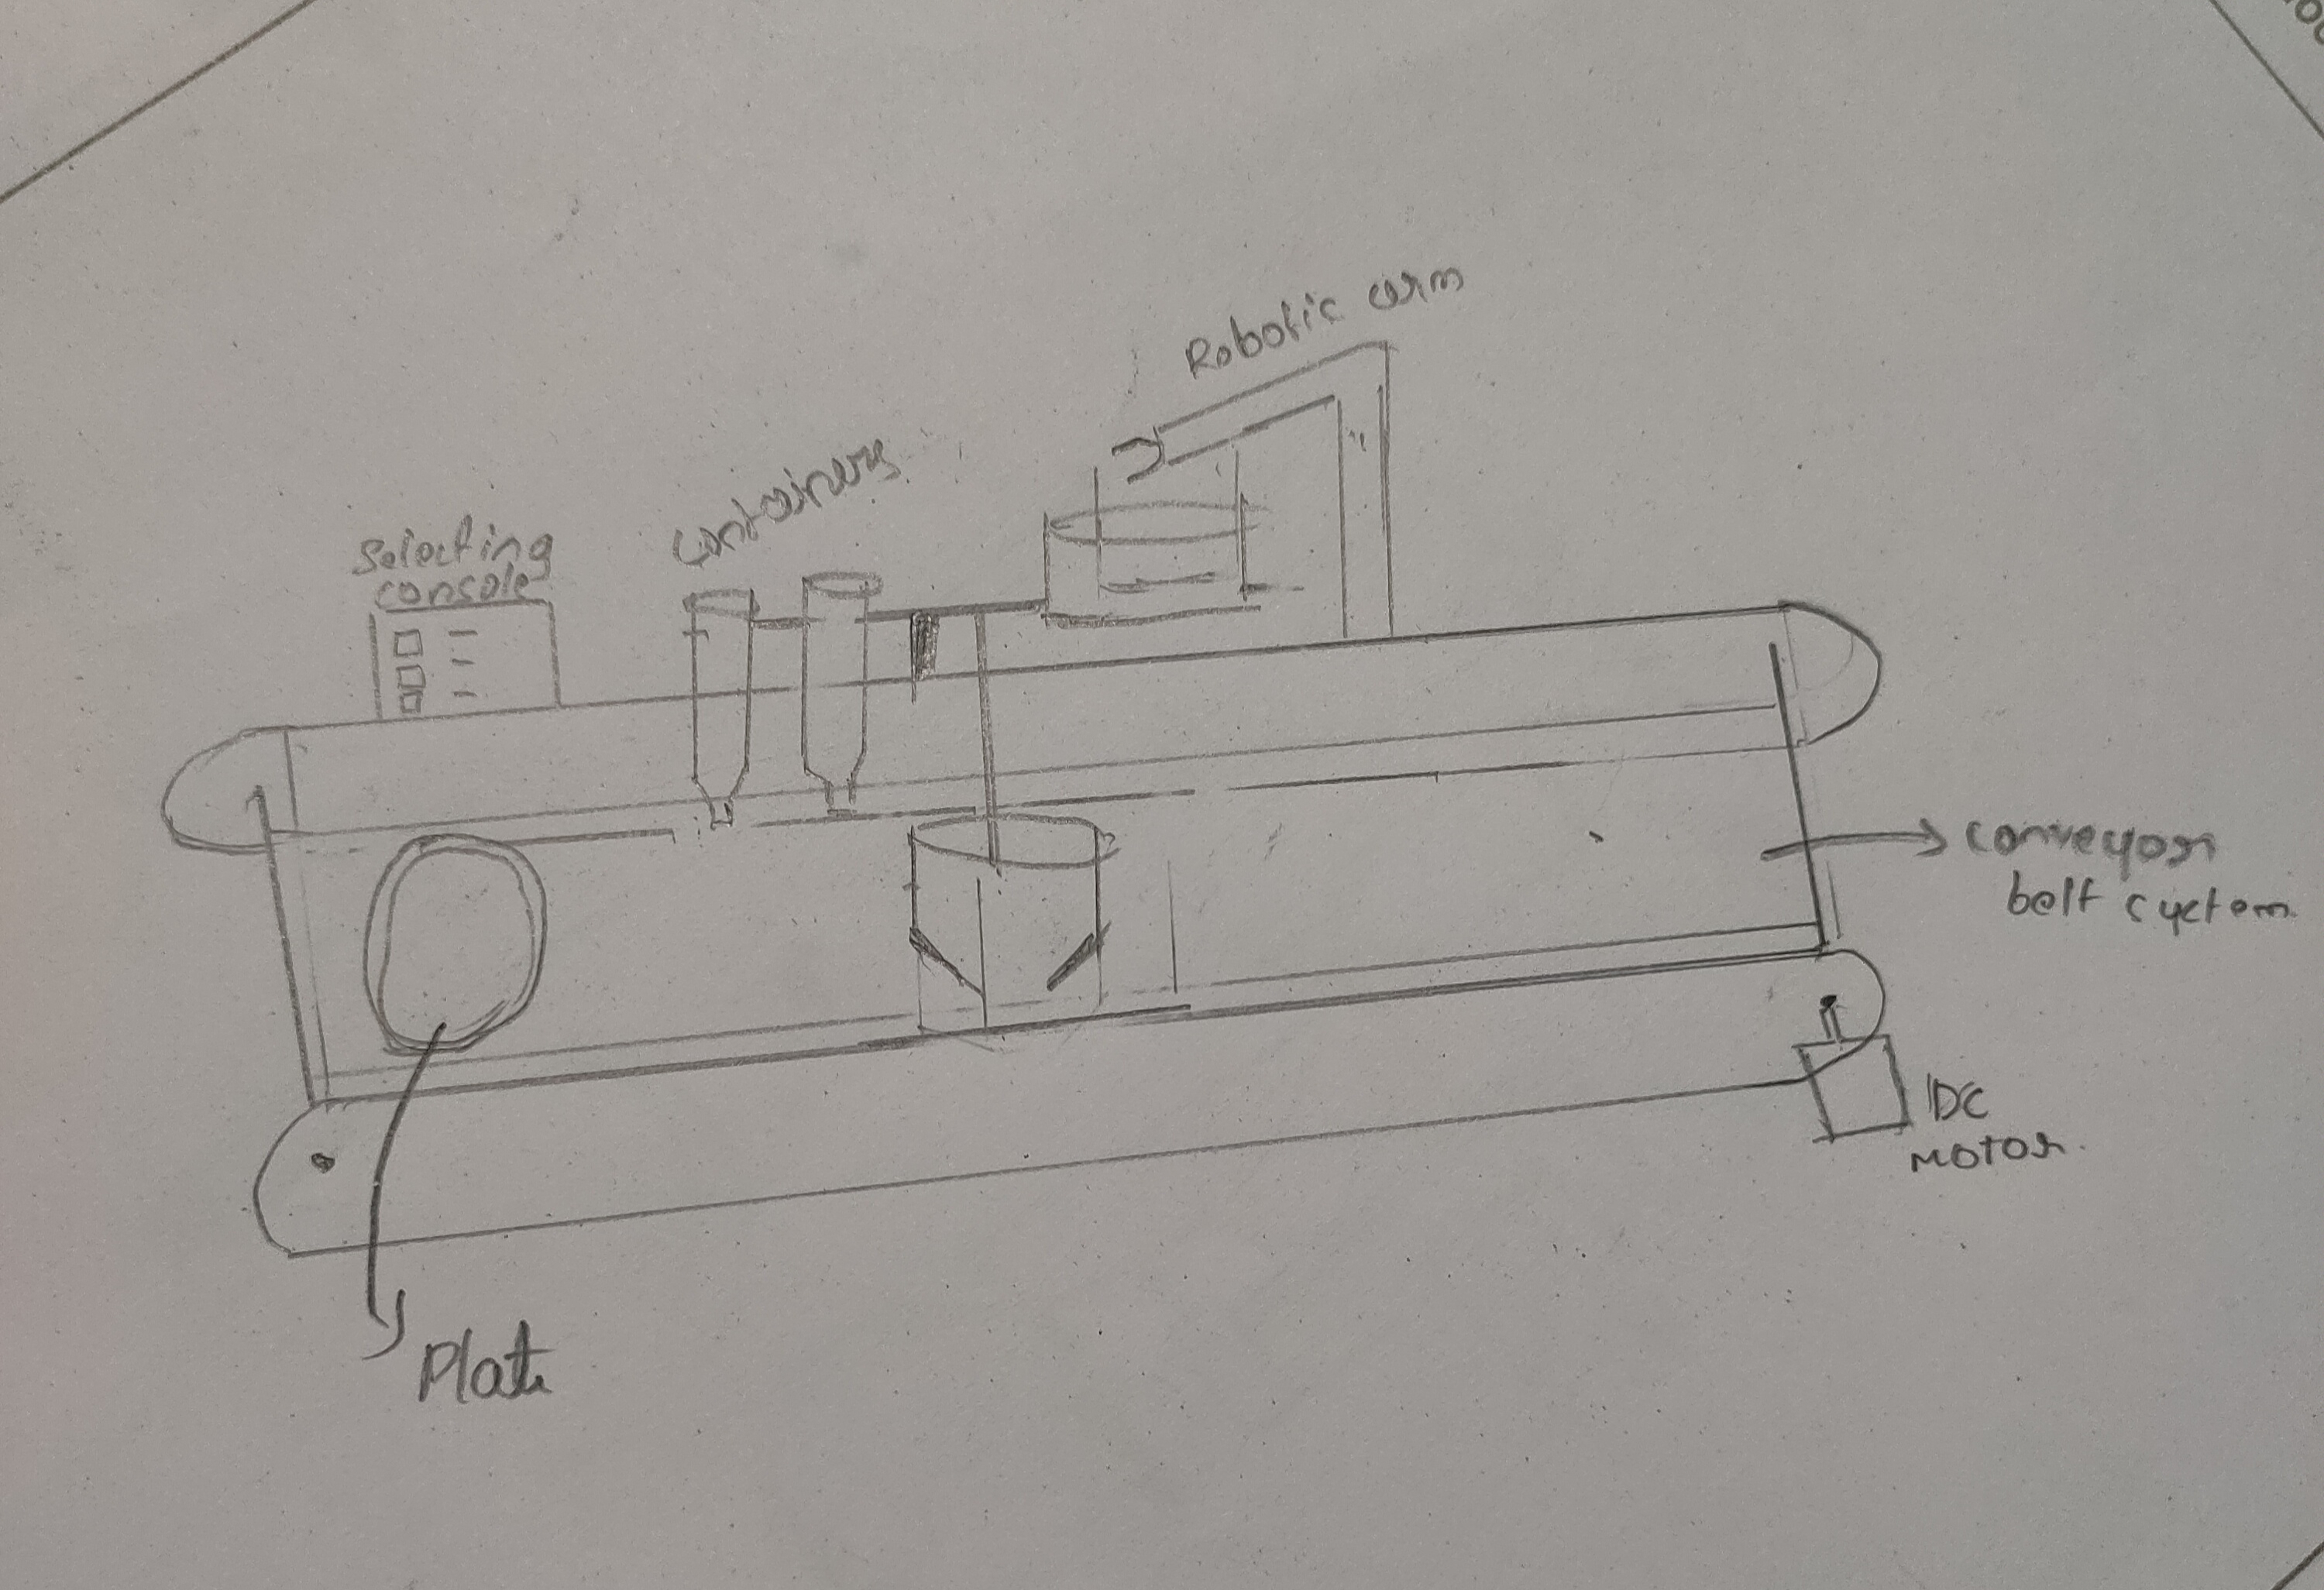 Robotic arm
Containers
Selecting
console
conveyor
belt cyctem
DC
MOTOR.
Plate